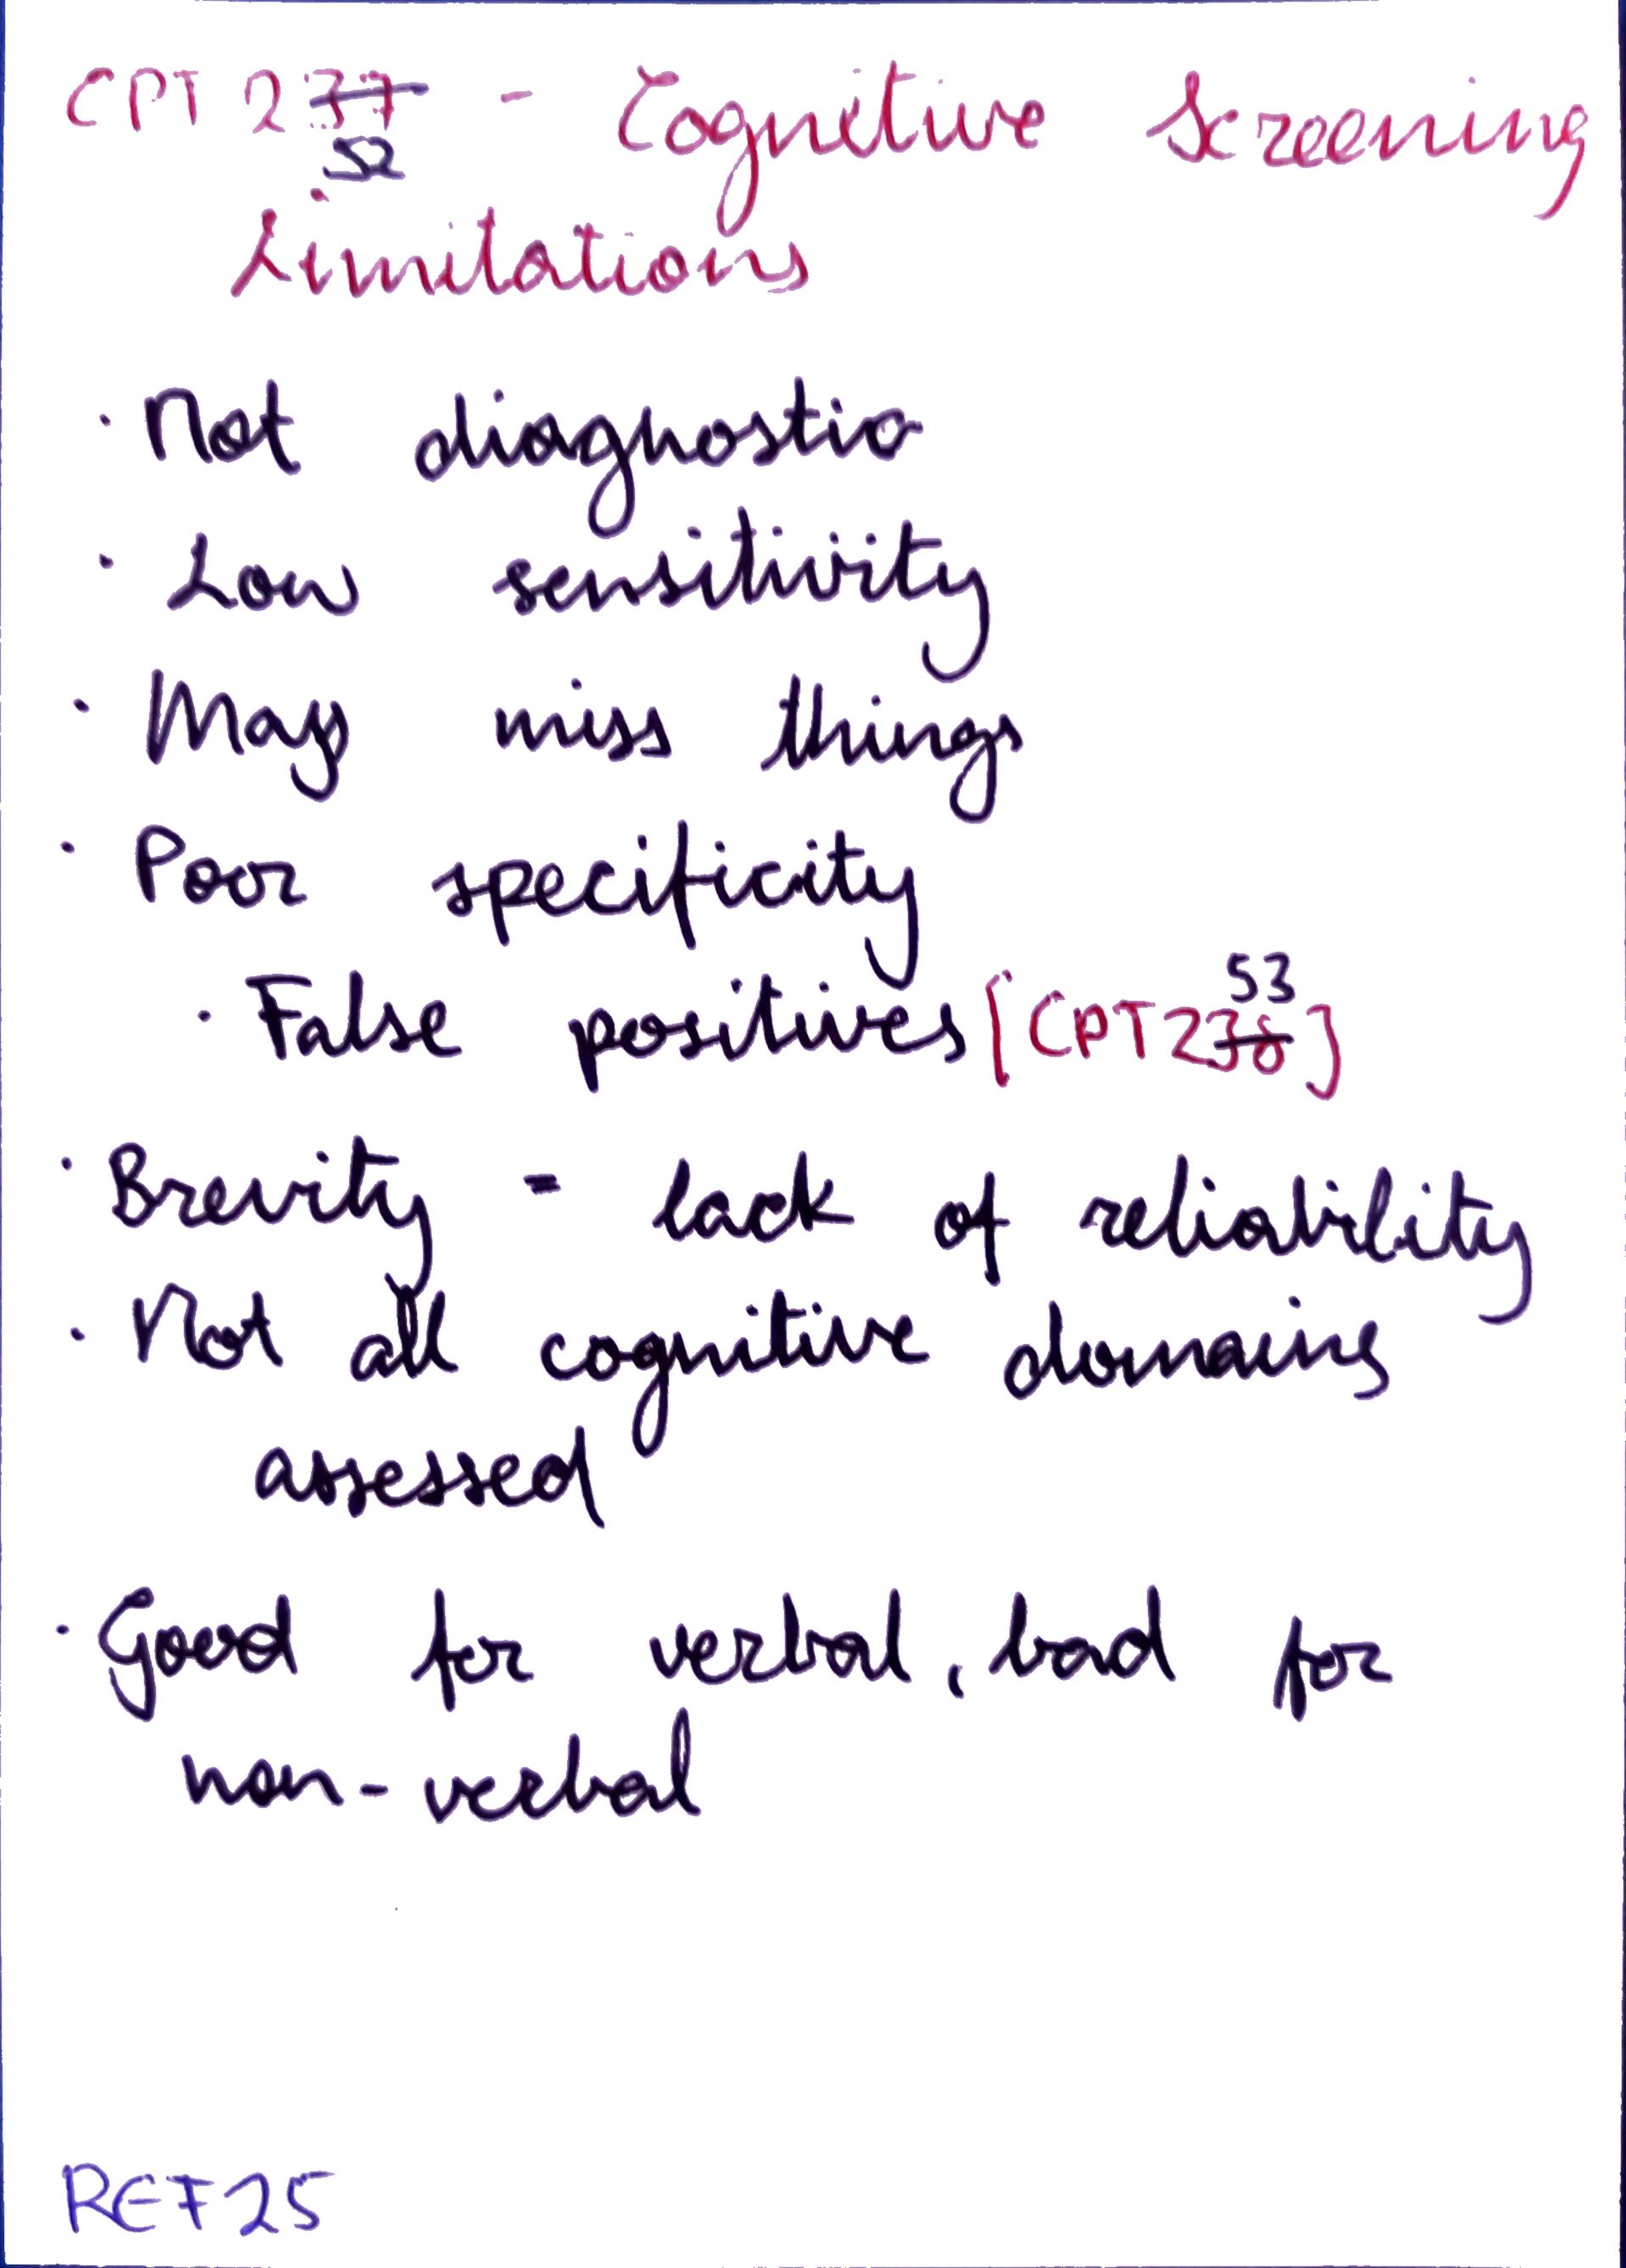 CPT 2~~37~~ - Cognitive Screening
52
Limitations
· Not diagnostic
· Low sensitivity
· May miss things
· Poor specificity
53
· False positives [CPT2~~38~~]
· Brevity = lack of reliability
· Not all cognitive domains
assessed
· Good for verbal, bad for
non-verbal
REF25